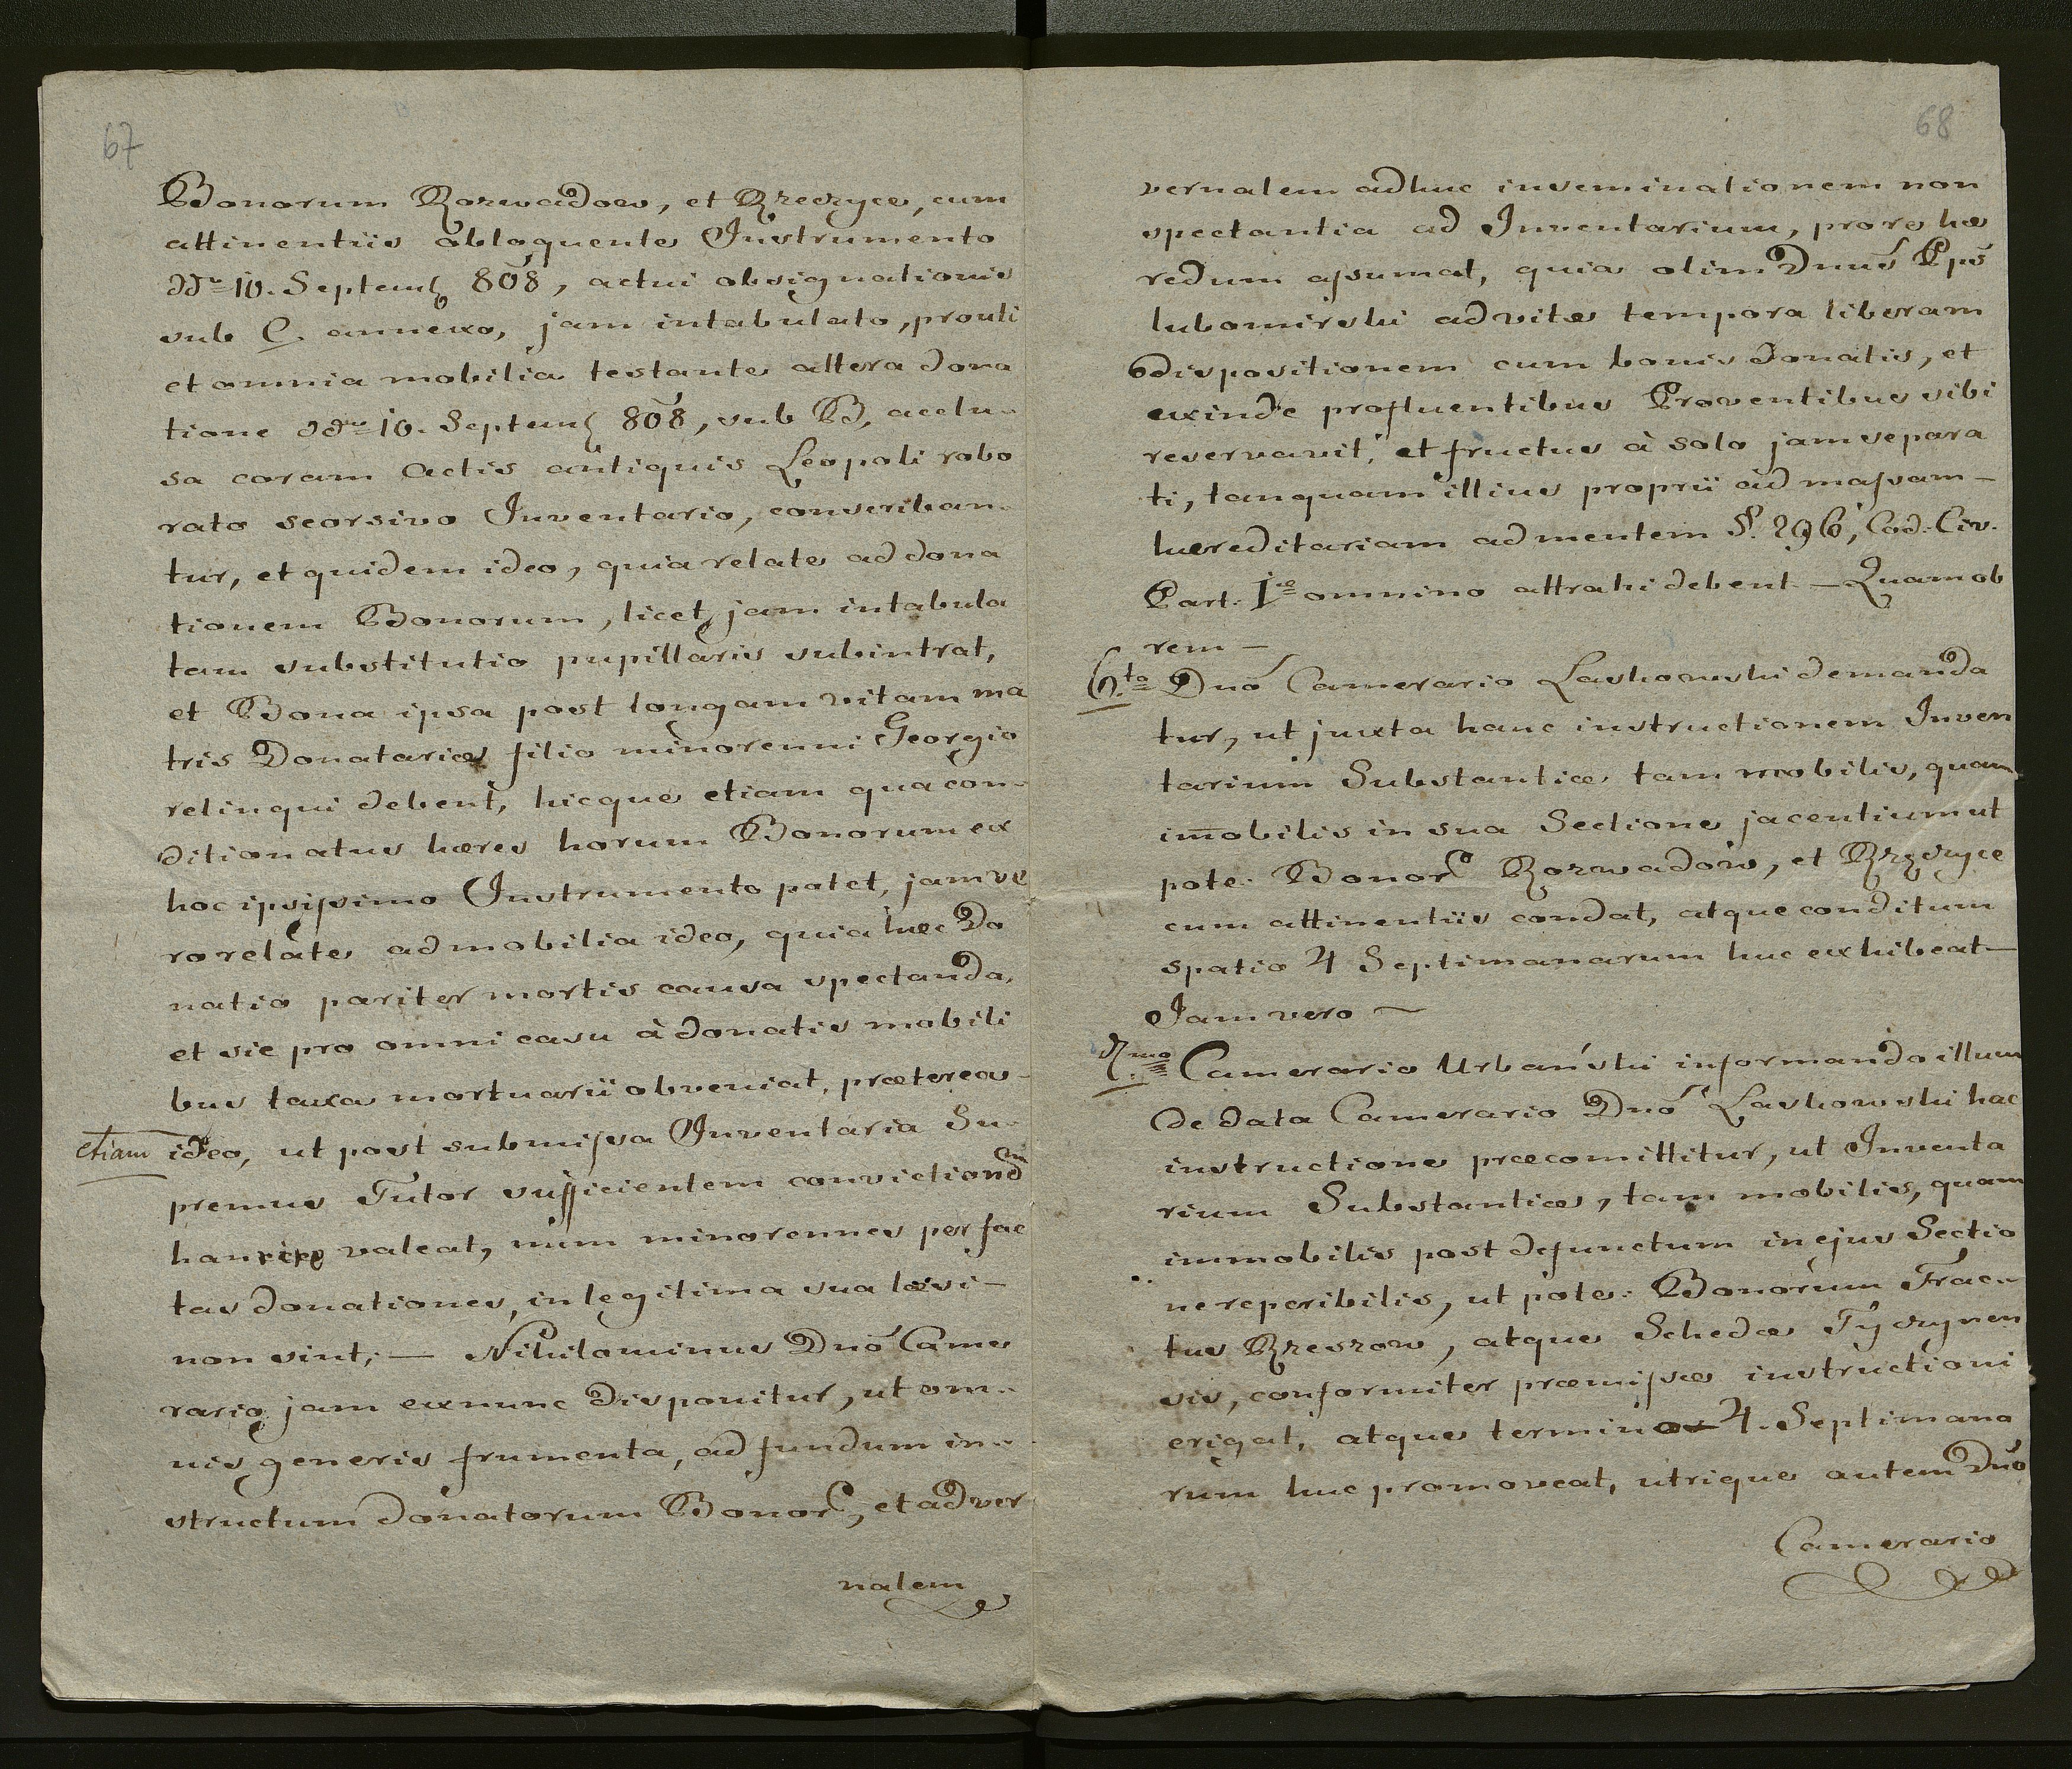 67
Bonorum Rozwadow, et Rzeczyce, cum
attinentiis obloquente Instrumento
ddto 10. Septemb 808, actui obsignationis
sub C. annexo, jam intabulato, prouti
et omnia mobilia testante altera dona
tione ddto 10. Septemb 808, sub B, acclu-
sa coram Actis antiquis Leopoli robo
rato seorsivo Inventario, conscriban-
tur, et quidem ideo, quia relate ad dona
tionem Bonorum, licet jam intabula
tam substitutio pupillaris subintrat,
et Bona ipsa post longam vitam ma
tris Donatariæ filio minorenni Georgio
relinqui debent, hicque etiam qua con-
ditionatus hæres horum Bonorum ex
hoc ipsissimo Instrumento patet, jam ve
ro relate ad mobilia ideo, quia hæc Do
natio pariter mortis causa spectanda,
et sic pro omni casu à donatis mobili
bus taxa mortuarii obveniat, prætereas-
etiam ideo, ut post submissa Inventaria Su-
premus Tutor sufficientem convictionem
haurire valeat, num minorennes per fac
tas donationes, in legitima sua læsi-
non sint; — Nihilominus Dnō Came
rario jam exnunc disponitur, ut om-
nis generis frumenta, ad fundum in-
structum donatorum Bonor, et ad ver
nalem
68
vernalem adhuc inseminationem non
spectantia ad Inventarium, pro re hæ
redum assumat, quia olim Dnus Pps
Lubomirski ad vitæ tempora liberam
dispositionem cum bonis donatis, et
exinde profluentibus Proventibus sibi
reservavit, et fructus à solo jam separa
ti, tanquam illius proprii ad massam-
hæreditariam ad mentem §. 296, Cod: Civ.
Part: I. omnino attrahi debent — Quam ob
rem —
6.to Dnō Camerario Laskowski demanda
tur, ut juxta hanc instructionem Inven
tarium Substantiæ tam mobilis, quam
im̄obilis in sua Sectione jacentium ut
pote: Bonor Rozwadów, et Rzeczyce
cum attinentiis condat, atque conditum
spatio 4 Septimanarum huc exhibeat —
Jam vero ~
7.mo Camerario Urbański informando illum
de data Camerario Dnō Laskowski hac
instructione præcomittitur, ut Inventa
rium Substantiæ, tam mobilis, quam
immobilis post defunctum in ejus Sectio
ne reperibilis, ut pote: Bonorum Trac-
tus Rzeszow, atque Schedæ Tyczynen
sis, conformiter præmissæ instructioni
erigat, atque termino 4. Septimana
rum huc promoveat, utrique autem Dnō
Camerario